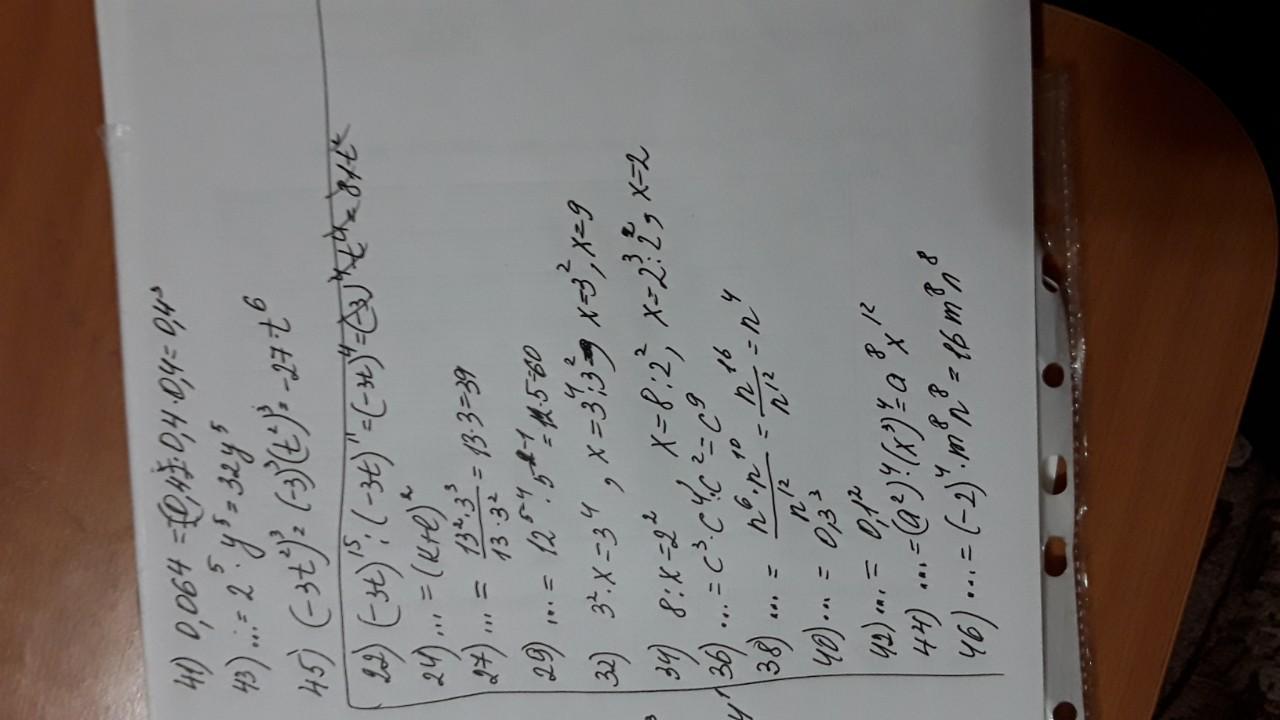 41) 0,064 = 0,4·0,4·0,4 = 0,4³
43) ... = 2⁵·y⁵ = 32y⁵
45) (-3t²)³ = (-3)³(t²)³ = -27·t⁶
22) (-3t)¹⁵ : (-3t)¹¹ = (-3t)⁴ = (-3)⁴·t⁴ = 81t⁴
24) ... = (k+l)²
27) ... = 13²·3³ / 13·3² = 13·3 = 39
29) ... = 12⁵⁻⁴ · 5²⁻¹ = 12·5=60
32) 3²·x = 3⁴, x = 3⁴:3², x=3², x=9
34) 8:x=2² x=8:2², x=2³:2², x=2
36) ... = c³·c⁴·c² = c⁹
38) ... = n⁶·n¹⁰ / n¹² = n¹⁶ / n¹² = n⁴
40) ... = 0,3³
42) ... = 0,1¹²
44) ... = (a²)⁴·(x³)⁴ = a⁸x¹²
46) ... = (-2)⁴·m⁸n⁸ = 16m⁸n⁸